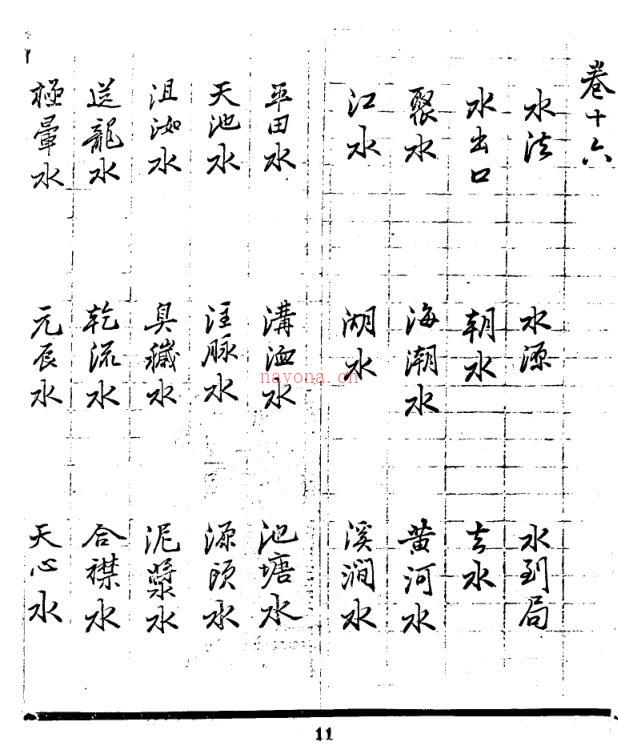 卷十六
水法 水源 水到局
水出口 朝水 去水
聚水 海潮水 黄河水
江水 湖水 溪澗水
平田水 溝洫水 池塘水
天池水 注脉水 源頭水
沮洳水 臭穢水 泥漿水
送龍水 乾流水 合襟水
極暈水 元辰水 天心水
11
nayona.cn